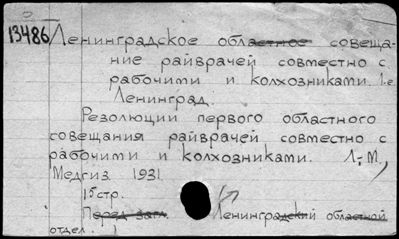 13486 Ленинградское областное совеща-
ние райврачей совместно с
рабочими и колхозниками. 1-е.
Ленинград.
Резолюции первого областного
совещания райврачей совместно с
рабочими и колхозниками. Л.-М.,
Медгиз 1931
15 стр.
Перед загл. Ленинградский областной
отдел.